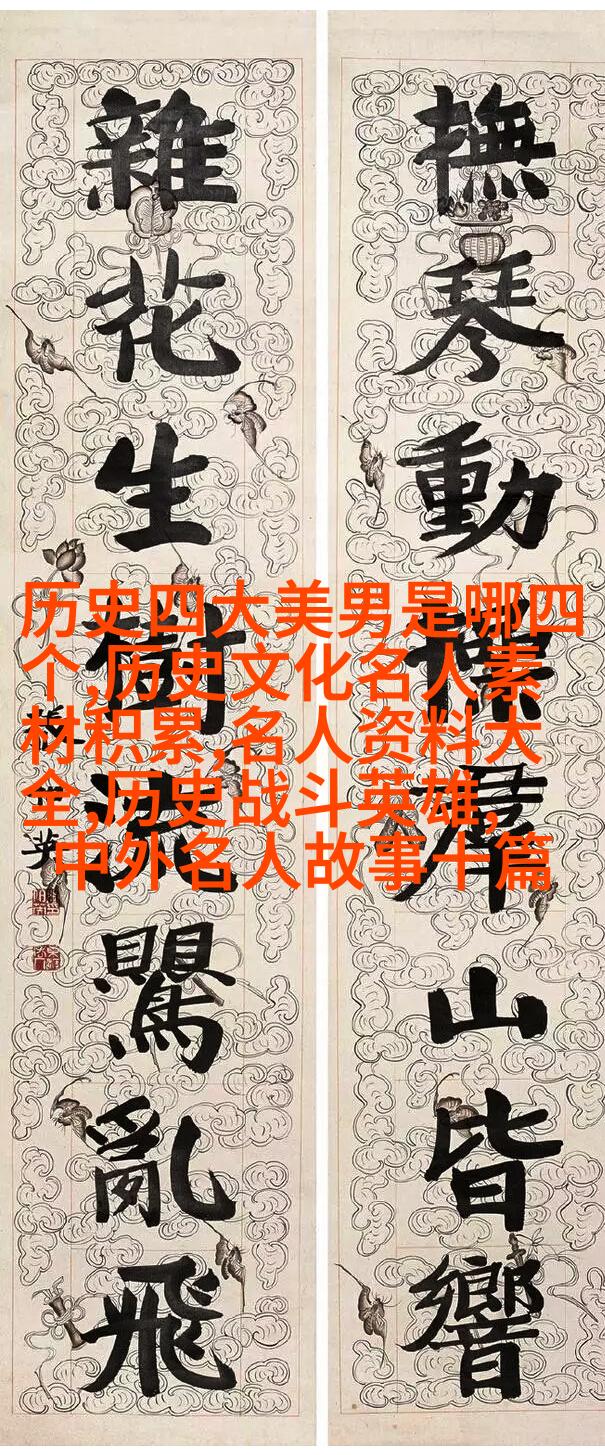 撫琴動操羣山皆響
雜花生樹流鸎亂飛
历史四大美男是哪四
个,历史文化名人素
材积累,名人资料大
全,历史战斗英雄,
中外名人故事十篇